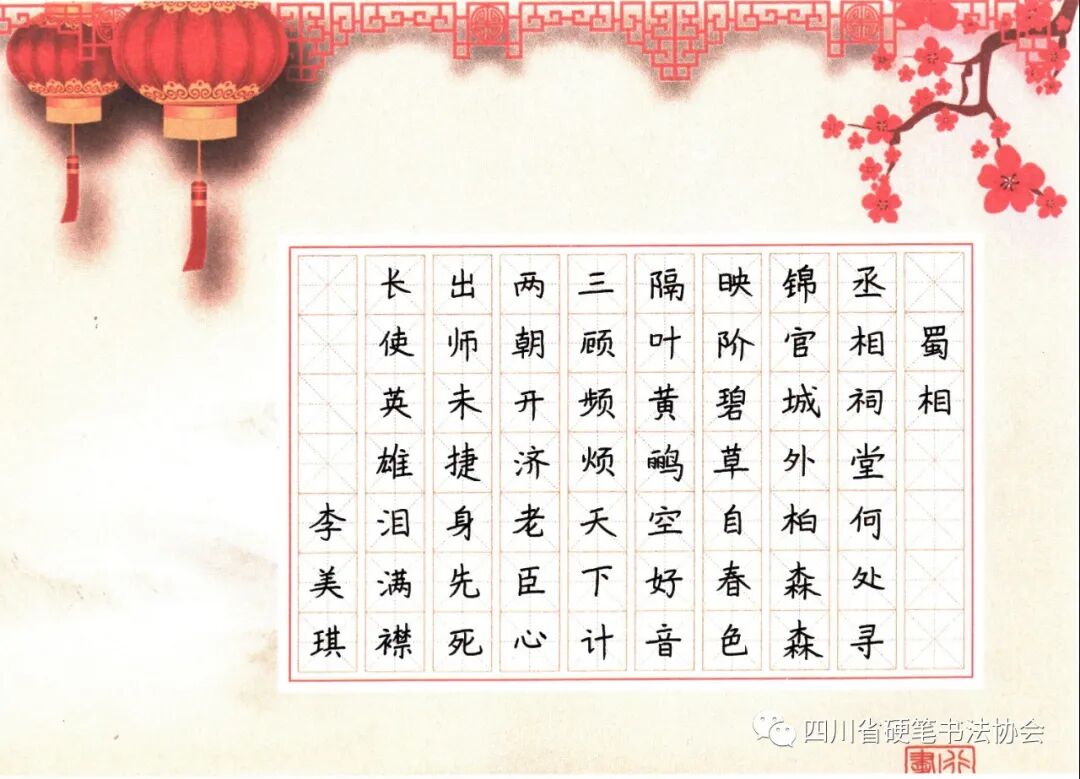 蜀相
丞相祠堂何处寻
锦官城外柏森森
映阶碧草自春色
隔叶黄鹂空好音
三顾频烦天下计
两朝开济老臣心
出师未捷身先死
长使英雄泪满襟
李美琪
四川省硬笔书法协会